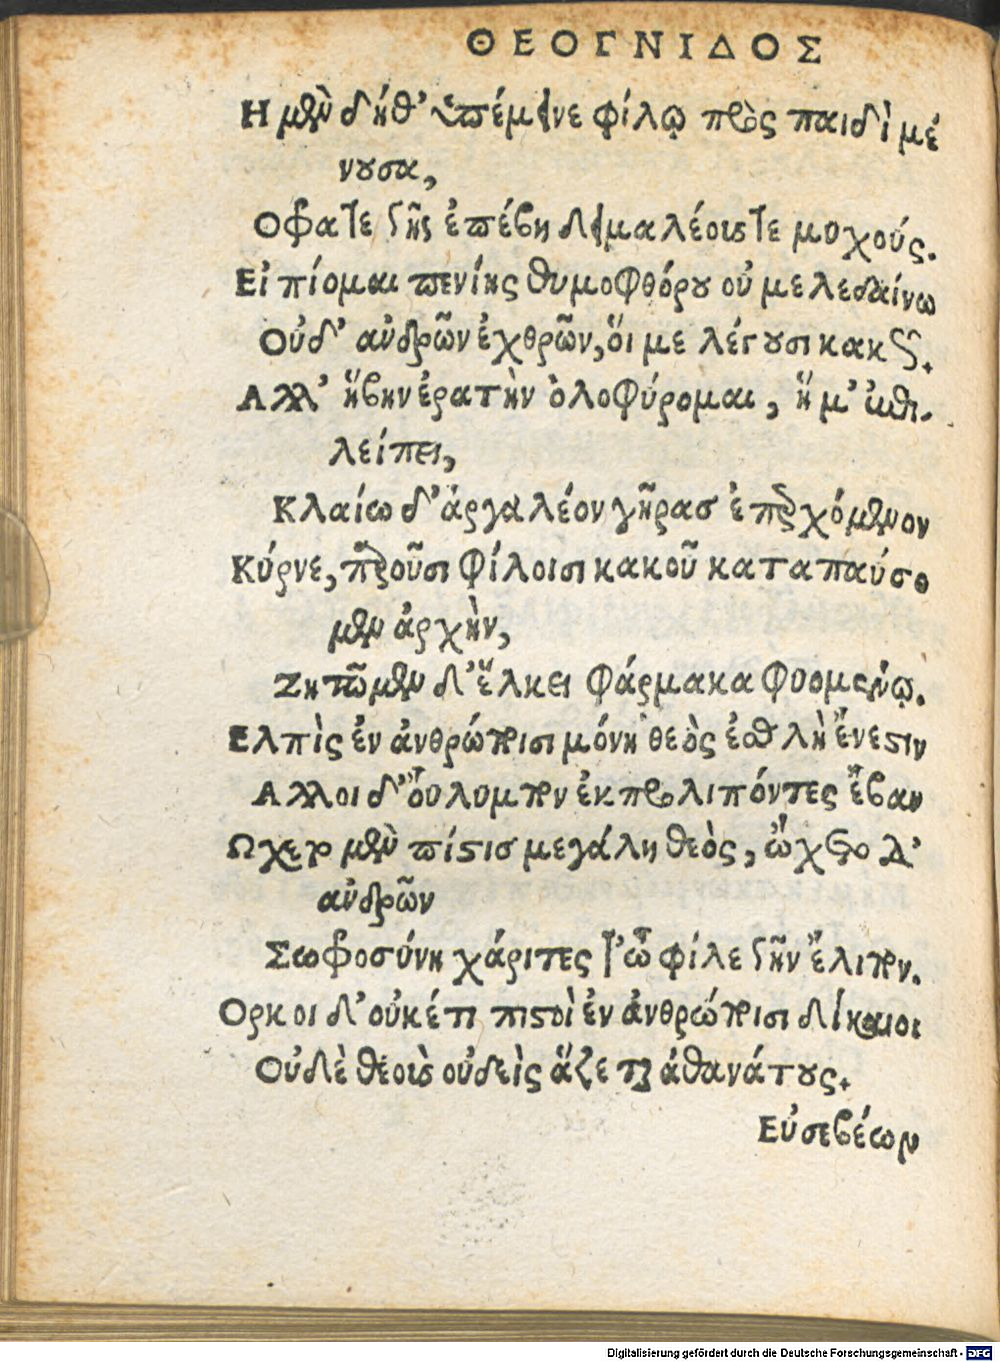 ΘΕΟΓΝΙΔΟΣ
Η μὲν δήθ' ὑπέμεινε φίλῳ πρὸς παιδὶ μέ
νουσα,
Οφρα τε γῆς ἐπέβη δειμαλέοις τε μυχούς.
Εἰ πίομαι πενίης θυμοφθόρου οὐ μελεδαίνω
Οὐδ' ἀνδρῶν ἐχθρῶν, ὅι με λέγουσι κακῶς.
Αλλ' ἥβην ἐρατὴν ὀλοφύρομαι, ἥ μ' ἐπι-
λείπει,
Κλαίω δ' ἀργαλέον γῆρας ἐπερχόμενον
Κύρνε, παροῦσι φίλοισι κακοῦ καταπαύσο
μεν ἀρχὴν,
Ζητῶμεν δ' ἕλκει φάρμακα φυομένῳ.
Ελπὶς ἐν ἀνθρώποισι μόνη θεὸς ἐσθλὴ ἔνεστιν
Αλλοι δ' οὔλυμπον ἐκπρολιπόντες ἔβαν
Ωχετο μὲν πίστις μεγάλη θεὸς, ὤχετο δ'
ἀνδρῶν
Σωφροσύνη χάριτες τ' ὦ φίλε γῆν ἔλιπον.
Ορκοι δ' οὐκέτι πιστοὶ ἐν ἀνθρώποισι δίκαιοι
Οὐδὲ θεοὺς οὐδεὶς ἅζεται ἀθανάτους.
Εὐσεβέων
Digitalisierung gefördert durch die Deutsche Forschungsgemeinschaft - DFG